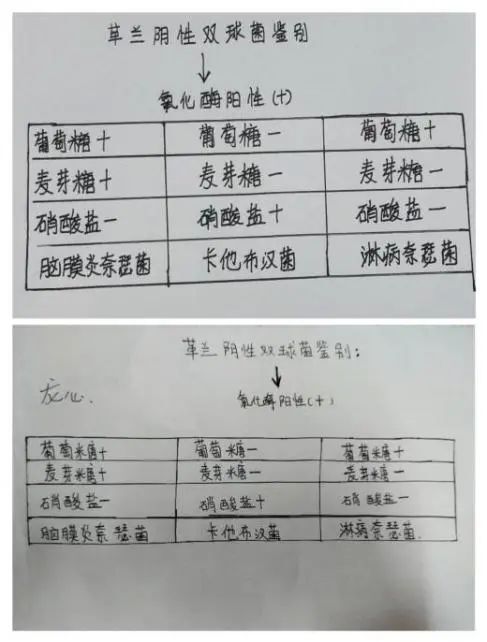 革兰阴性双球菌鉴别
氧化酶阳性(+)
葡萄糖+ 葡萄糖- 葡萄糖+
麦芽糖+ 麦芽糖- 麦芽糖-
硝酸盐- 硝酸盐+ 硝酸盐-
脑膜炎奈瑟菌 卡他布汉菌 淋病奈瑟菌
革兰阴性双球菌鉴别:
氧化酶阳性(+)
葡萄糖+ 葡萄糖- 葡萄糖+
麦芽糖+ 麦芽糖- 麦芽糖-
硝酸盐- 硝酸盐+ 硝酸盐-
脑膜炎奈瑟菌 卡他布汉菌 淋病奈瑟菌.